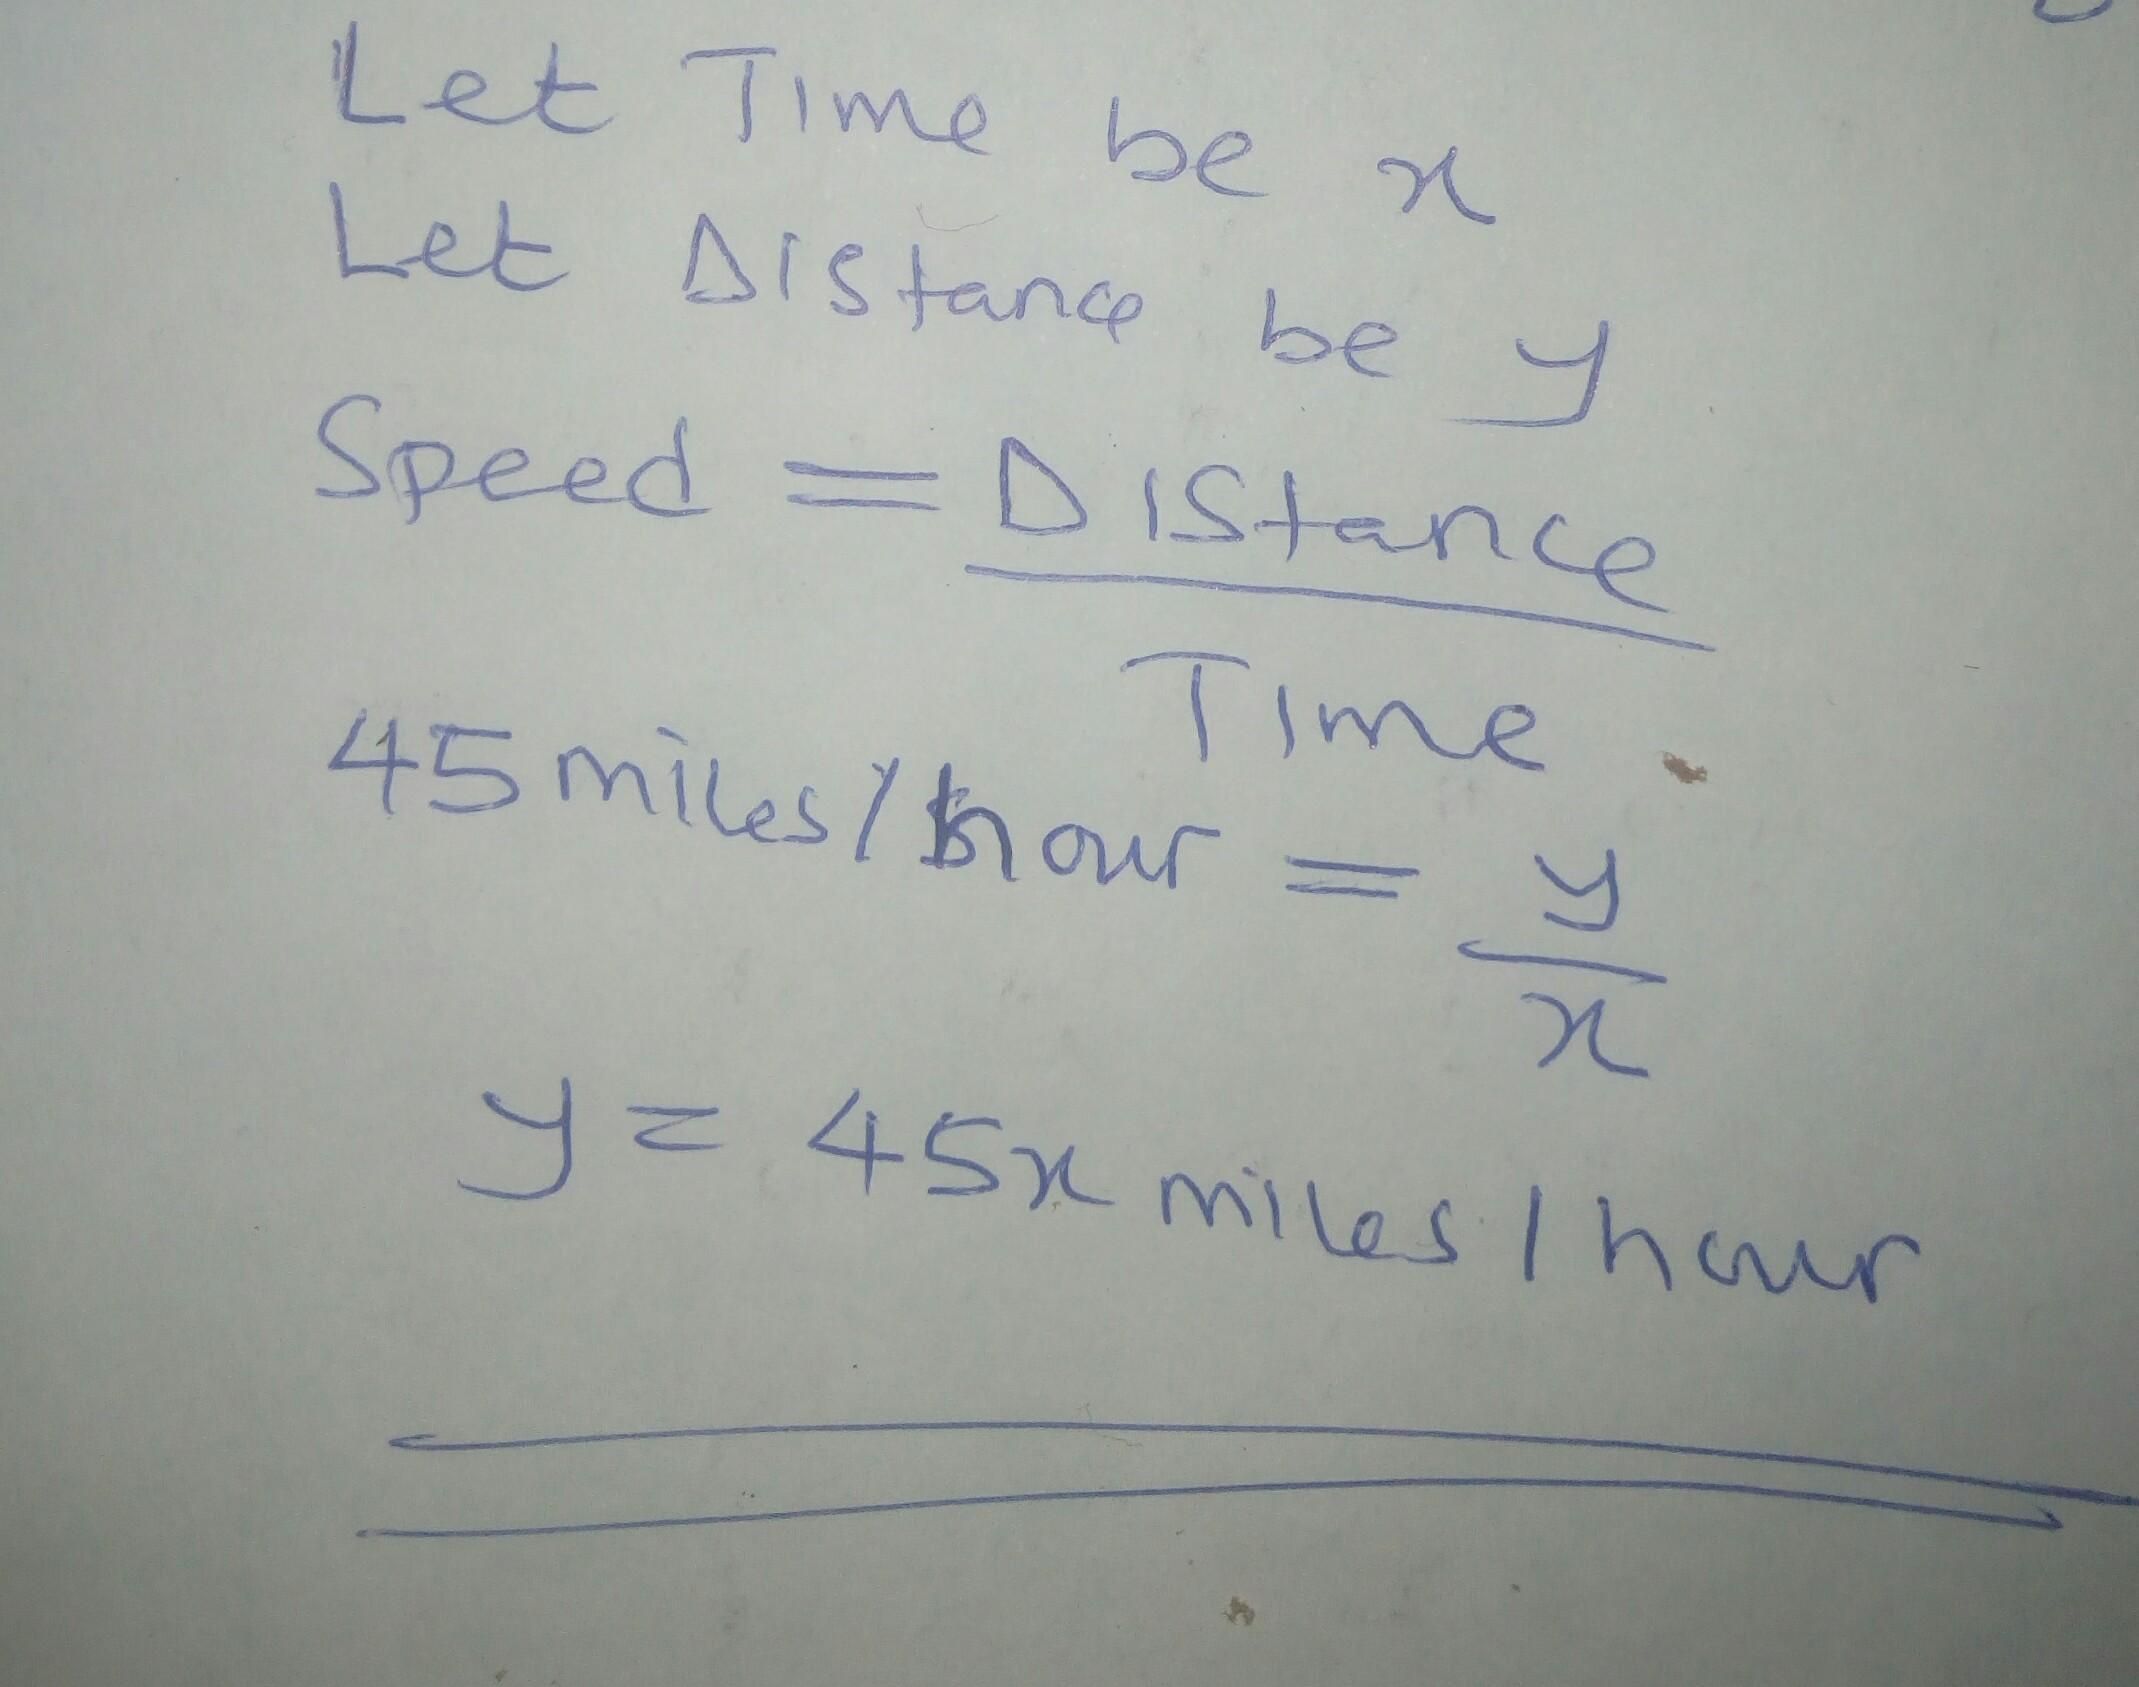 Let Time be x
Let Distance be y
Speed = Distance
Time
45 miles/hour = y
x
y = 45x miles/hour